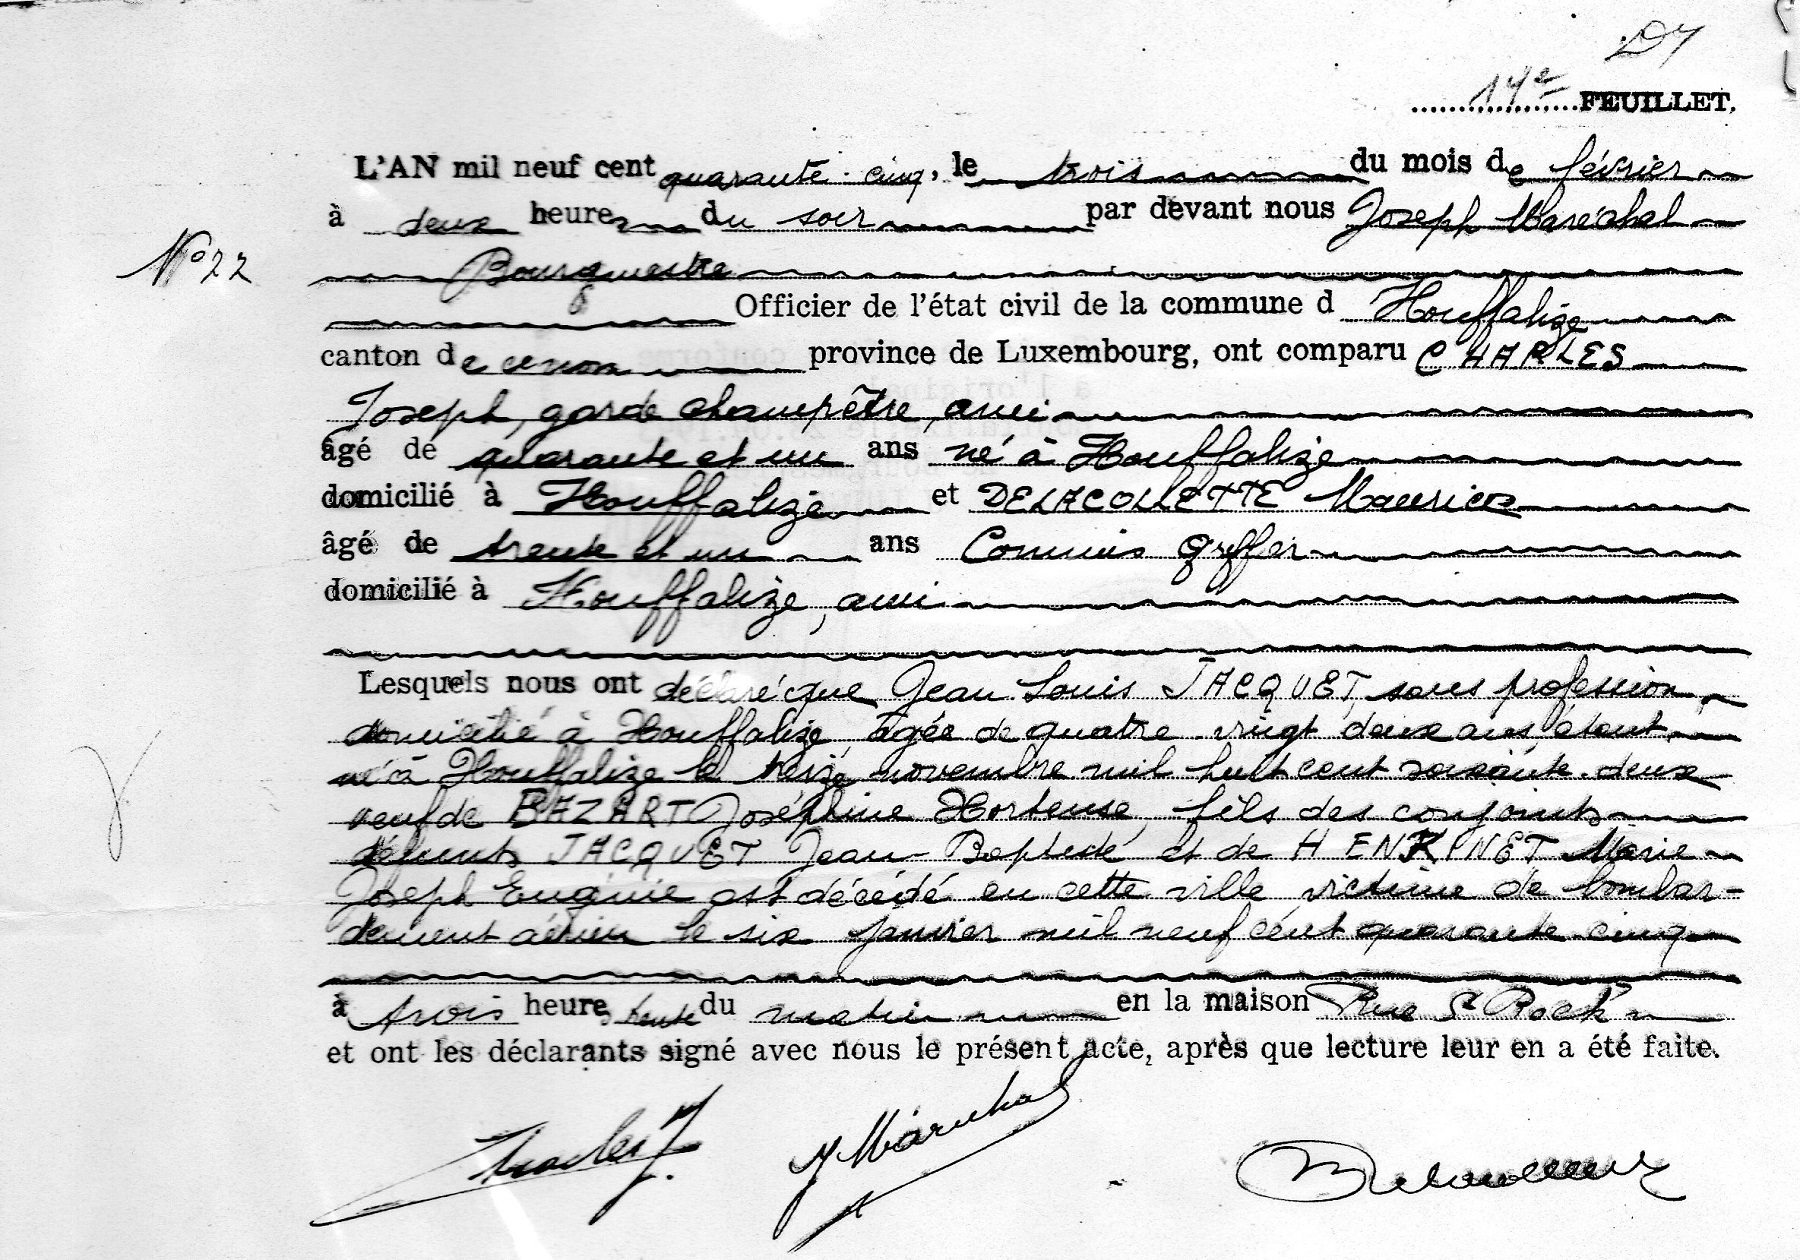 14e FEUILLET.
L'AN mil neuf cent quarante-cinq, le trois du mois de février
à deux heures du soir par devant nous Joseph Maréchal
N° 22
Bourgmestre
Officier de l'état civil de la commune d Houffalize
canton de province de Luxembourg, ont comparu CHARLES
Joseph, garde champêtre, ami
âgé de quarante et un ans né à Houffalize
domicilié à Houffalize et DELACOLLETTE Maurice
âgé de trente et un ans Commis Greffier
domicilié à Houffalize, ami
Lesquels nous ont déclaré que Jean Louis JACQUET, sans profession
domicilié à Houffalize, âgée de quatre-vingt deux ans, étant
né à Houffalize le treize novembre mil huit cent soixante-deux
veuf de BAZART Joséphine Hortense, fils des conjoints
défunts JACQUET Jean Baptiste et de HENRINET Marie
Joseph Eugénie est décédé en cette ville victime de bombar-
dement aérien le six janvier mil neuf cent quarante-cinq
à trois heures trente du matin en la maison Rue St Roch
et ont les déclarants signé avec nous le présent acte, après que lecture leur en a été faite.
Charles J. J Maréchal